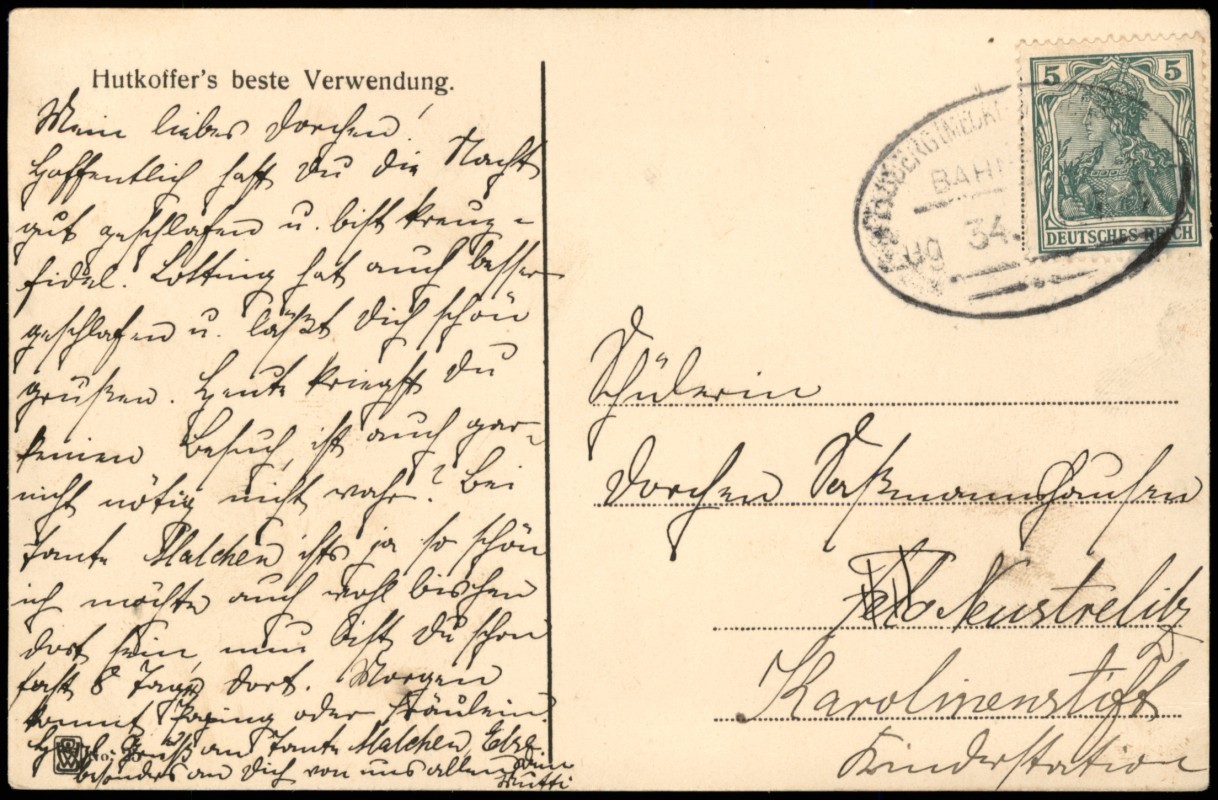 Hutkoffer's beste Verwendung.
Mein liebes Dorchen!
Hoffentlich hast Du die Nacht
gut geschlafen u. bist kreuz-
fidel. Lotting hat auch besser
geschlafen u. läßt Dich schön
grüßen. Heute kriegst Du
keinen Besuch, ist auch gar-
nicht nötig nicht wahr? Bei
Tante Malchen ists ja so schön
ich möchte auch wohl bischen
dort sein, nun bist Du schon
fast 8 Tage dort. Morgen
kommt Paping oder Fräulein.
Gruß an Tante Malchen, Else
besonders an Dich von uns allen Dein
Mutti
No.
5 5
DEUTSCHES REICH
BAHN
Zug 34.
Schülerin
Dorchen Saßmannshausen
Neustrelitz
Karolinenstift
Kinderstation